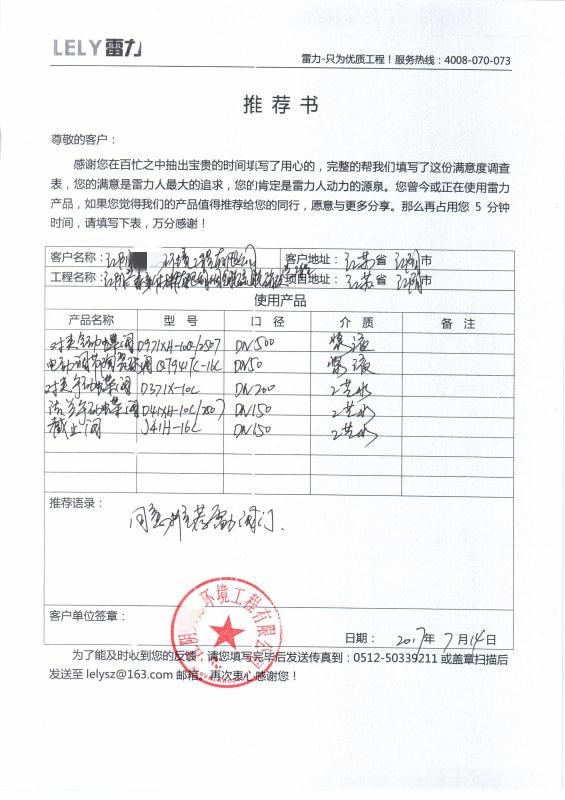 LELY雷力
雷力-只为优质工程！服务热线：4008-070-073
推荐书
尊敬的客户：
感谢您在百忙之中抽出宝贵的时间填写了用心的，完整的帮我们填写了这份满意度调查
表，您的满意是雷力人最大的追求，您的肯定是雷力人动力的源泉。您曾今或正在使用雷力
产品，如果您觉得我们的产品值得推荐给您的同行，愿意与更多分享。那么再占用您 5 分钟
时间，请填写下表，万分感谢！
客户名称：江阴 环境工程有限公司 客户地址：江苏省 江阴市
工程名称：江阴 项目地址：江苏省 江阴市
使用产品
产品名称 型 号 口 径 介 质 备 注
对夹 蝶阀 DN500 浆液
电动调节 Q7947C-16C DN50 浆液
对夹手动蝶阀 D371X-10C DN200 工艺水
法兰手动蝶阀 DN150 工艺水
截止阀 J41H-16C DN150 工艺水
推荐语录：
同意并推荐雷力阀门.
江阴 环境工程有限公司
客户单位签章：
日期： 2017年 7 月 14 日
为了能及时收到您的反馈，请您填写完毕后发送传真到：0512-50339211 或盖章扫描后
发送至 lelysz@163.com 邮箱。再次衷心感谢您！